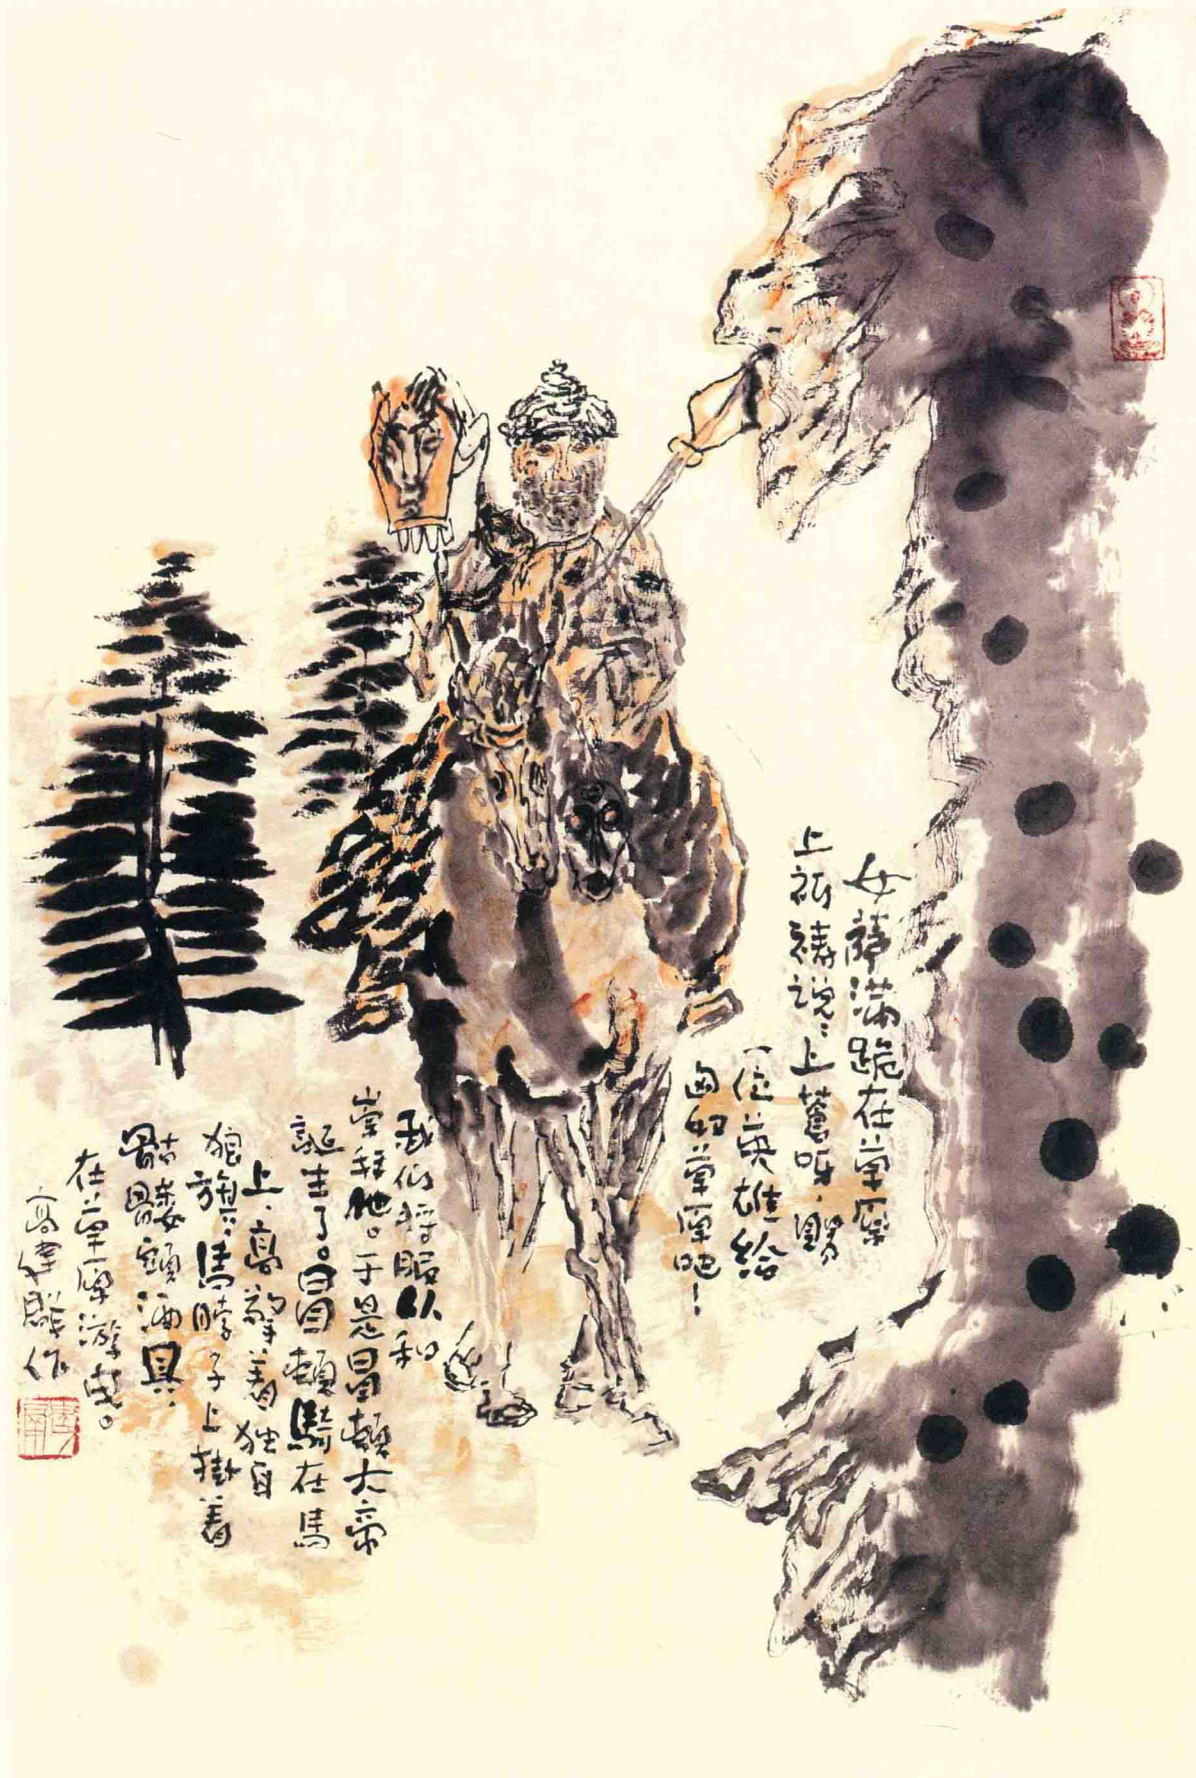 女萨满跪在草原
上祈祷说：上苍呀，赐
一位英雄给
匈奴草原吧！
我们将服从和
崇拜他。于是冒顿大帝
诞生了。冒顿骑在馬
上，高擎着独自
狼旗，馬脖子上掛着
骷髅頭酒具，
在草原游
高建群作